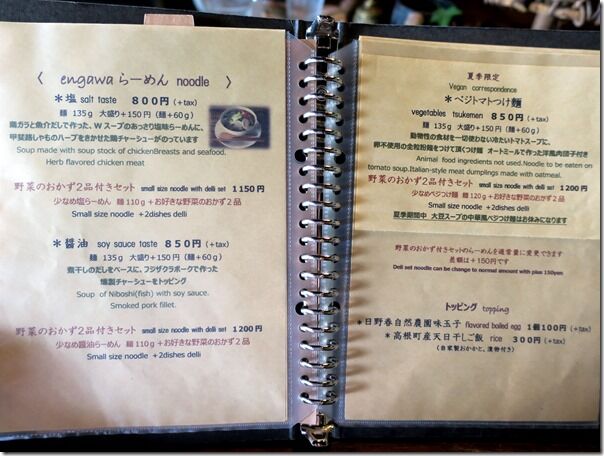 〈 engawa らーめん noodle 〉
＊塩 salt taste 800円 (+tax)
麺 135g 大盛り+150円 (麺+60g)
鶏ガラと魚介だしで作った、Wスープのあっさり塩味らーめんに、
甲斐路しゃものハーブをきかせた鶏チャーシューがのっています
Soup made with soup stock of chickenBreasts and seafood.
Herb flavored chicken meat
野菜のおかず2品付きセット small size noodle with deli set 1150円
少なめ塩らーめん 麺110g+お好きな野菜のおかず2品
Small size noodle +2dishes delli
＊醤油 soy sauce taste 850円 (+tax)
麺 135g 大盛り+150円 (麺+60g)
煮干しのだしをベースに、フジザクラポークで作った
燻製チャーシューをトッピング
Soup of Niboshi(fish) with soy sauce.
Smoked pork fillet.
野菜のおかず2品付きセット small size noodle with deli set 1200円
少なめ醤油らーめん 麺110g+お好きな野菜のおかず2品
Small size noodle +2dishes delli
夏季限定
Vegan correspondence
＊ベジトマトつけ麺
vegetables tsukemen 850円 (+tax)
麺 135g 大盛り+150円 (麺+60g)
動物性の食材を一切使わない冷たいトマトスープに、
卵不使用の全粒粉麺をつけて頂くつけ麺 オートミールで作った洋風肉団子付き
Animal food ingredients not used.Noodle to be eaten on
tomato soup.Italian-style meat dumplings made with oatmeal.
野菜のおかず2品付きセット small size noodle with delli set 1200円
少なめベジつけ麺 麺110g+お好きな野菜のおかず2品
Small size noodle +2dishes delli
夏季期間中 大豆スープの中華風ベジつけ麺はお休みになります
野菜のおかず付きセットのらーめんを通常量に変更できます
差額は+150円です
Deli set noodle can be change to normal amount with plus 150yen
トッピング topping
＊日野春自然農園味玉子 flavored boiled egg 1個100円 (+tax)
＊高根町産天日干しご飯 rice 300円 (+tax)
(自家製おかかと、漬物付き)